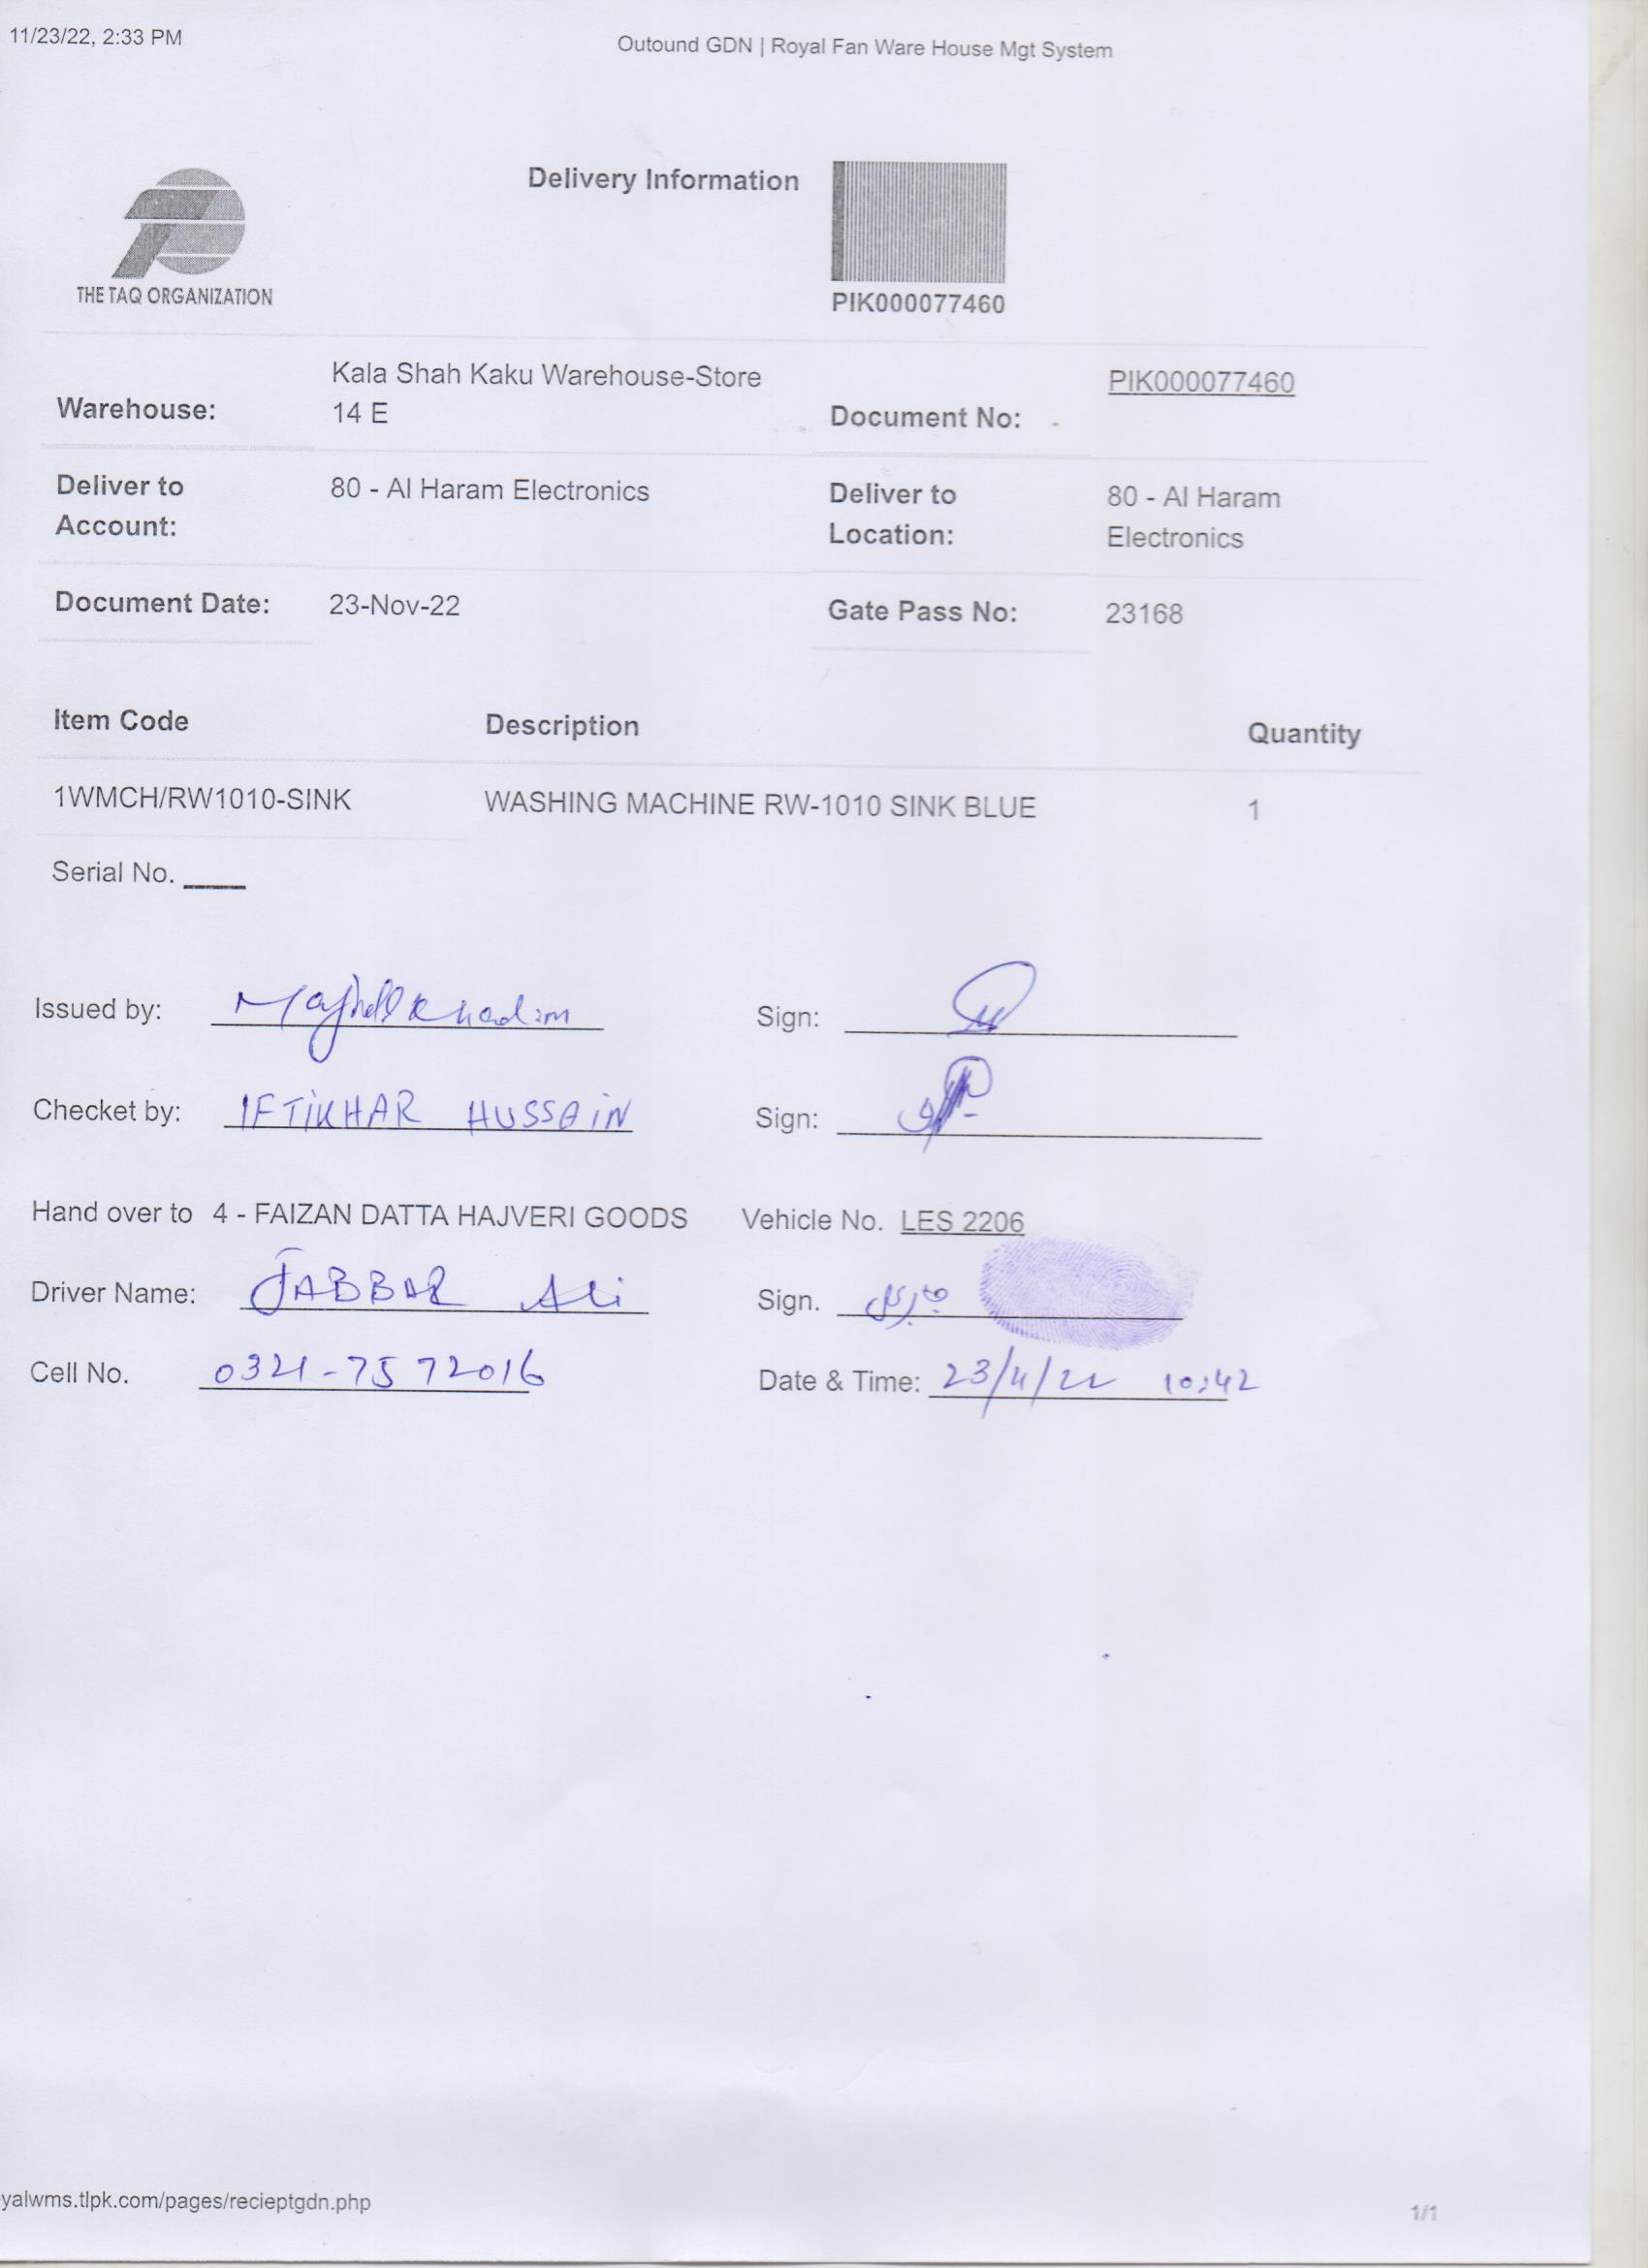 11/23/22, 2:33 PM
Outound GDN | Royal Fan Ware House Mgt System
Delivery Information
THE TAQ ORGANIZATION
PIK000077460
Kala Shah Kaku Warehouse-Store
PIK000077460
Warehouse: 14 E Document No:
Deliver to 80 - Al Haram Electronics Deliver to 80 - Al Haram
Account: Location: Electronics
Document Date: 23-Nov-22 Gate Pass No: 23168
Item Code Description Quantity
1WMCH/RW1010-SINK WASHING MACHINE RW-1010 SINK BLUE 1
Serial No. ____
Issued by: Khadim Sign:
Checket by: IFTIKHAR HUSSAIN Sign:
Hand over to 4 - FAIZAN DATTA HAJVERI GOODS Vehicle No. LES 2206
Driver Name: JABBAR Ali Sign.
Cell No. 0321-7572016 Date & Time: 23/11/22 10:42
yalwms.tlpk.com/pages/recieptgdn.php
1/1